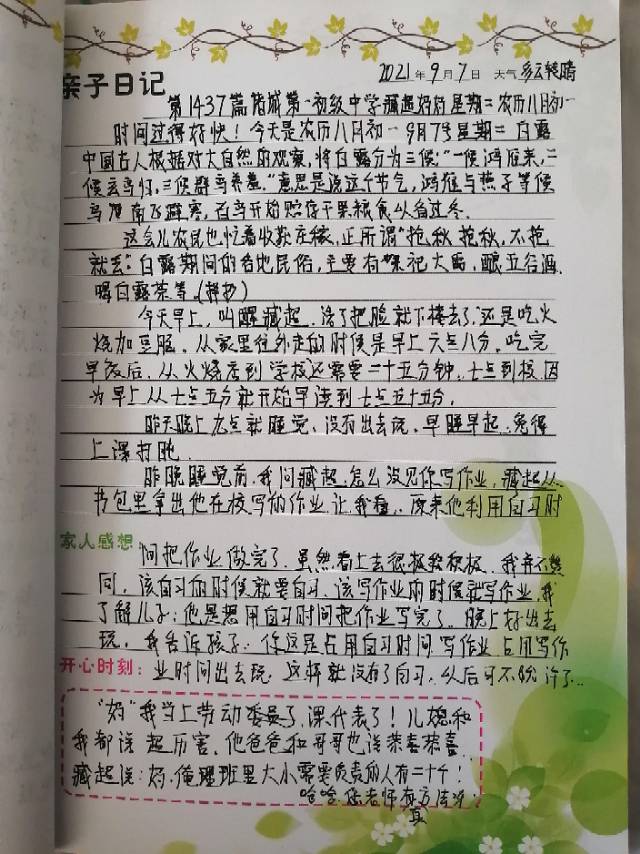 亲子日记
2021年9月7日 天气 多云转晴
第1437篇诸城第一初级中学臧起好好星期二农历八月初一
时间过得好快！今天是农历八月初一9月7号星期二 白露
中国古人根据对大自然的观察，将白露分为三候："一候鸿雁来，二
候玄鸟归，三候群鸟养羞。"意思是说这个节气，鸿雁与燕子等候
鸟 南飞避寒，百鸟开始贮存干果粮食以备过冬。
这会儿农民也忙着收获庄稼，正所谓"抢秋抢秋，不抢
就丢"白露期间的各地民俗，主要有 祭祀大禹，酿五谷酒
喝白露茶等。(摘抄)
今天早上，叫醒臧起，洗了把脸就下楼去了，还是吃火
烧加豆腐，从家里往外走的时候是早上六点八分，吃完
早饭后，从火烧店到学校还需要二十五分钟，七点到校，因
为早上从七点五分就开始早读到七点五十五分，
昨天晚上九点就睡觉，没有出去玩，早睡早起，免得
上课打盹
昨晚睡觉前，我问臧起，怎么没见你写作业，臧起从
书包里拿出他在校写的作业让我看，原来他利用自习时
家人感想
间把作业做完了，虽然看上去很积极，我并不赞
同，该自习的时候就要自习，该写作业的时候就写作业，我
了解儿子：他是想用自习时间把作业写完了，晚上好出去
玩，我告诉孩子：你这是占用自习时间写作业，占用写作
开心时刻：业时间出去玩，这样就没有了自习，以后可不允许了…
"妈"我当上劳动委员了，课代表了！儿媳和
我都说起厉害，他爸爸和哥哥也说恭喜恭喜
臧起说：妈，俺班里大小需要负责的人有二十个！
哈哈 老师有方法
真